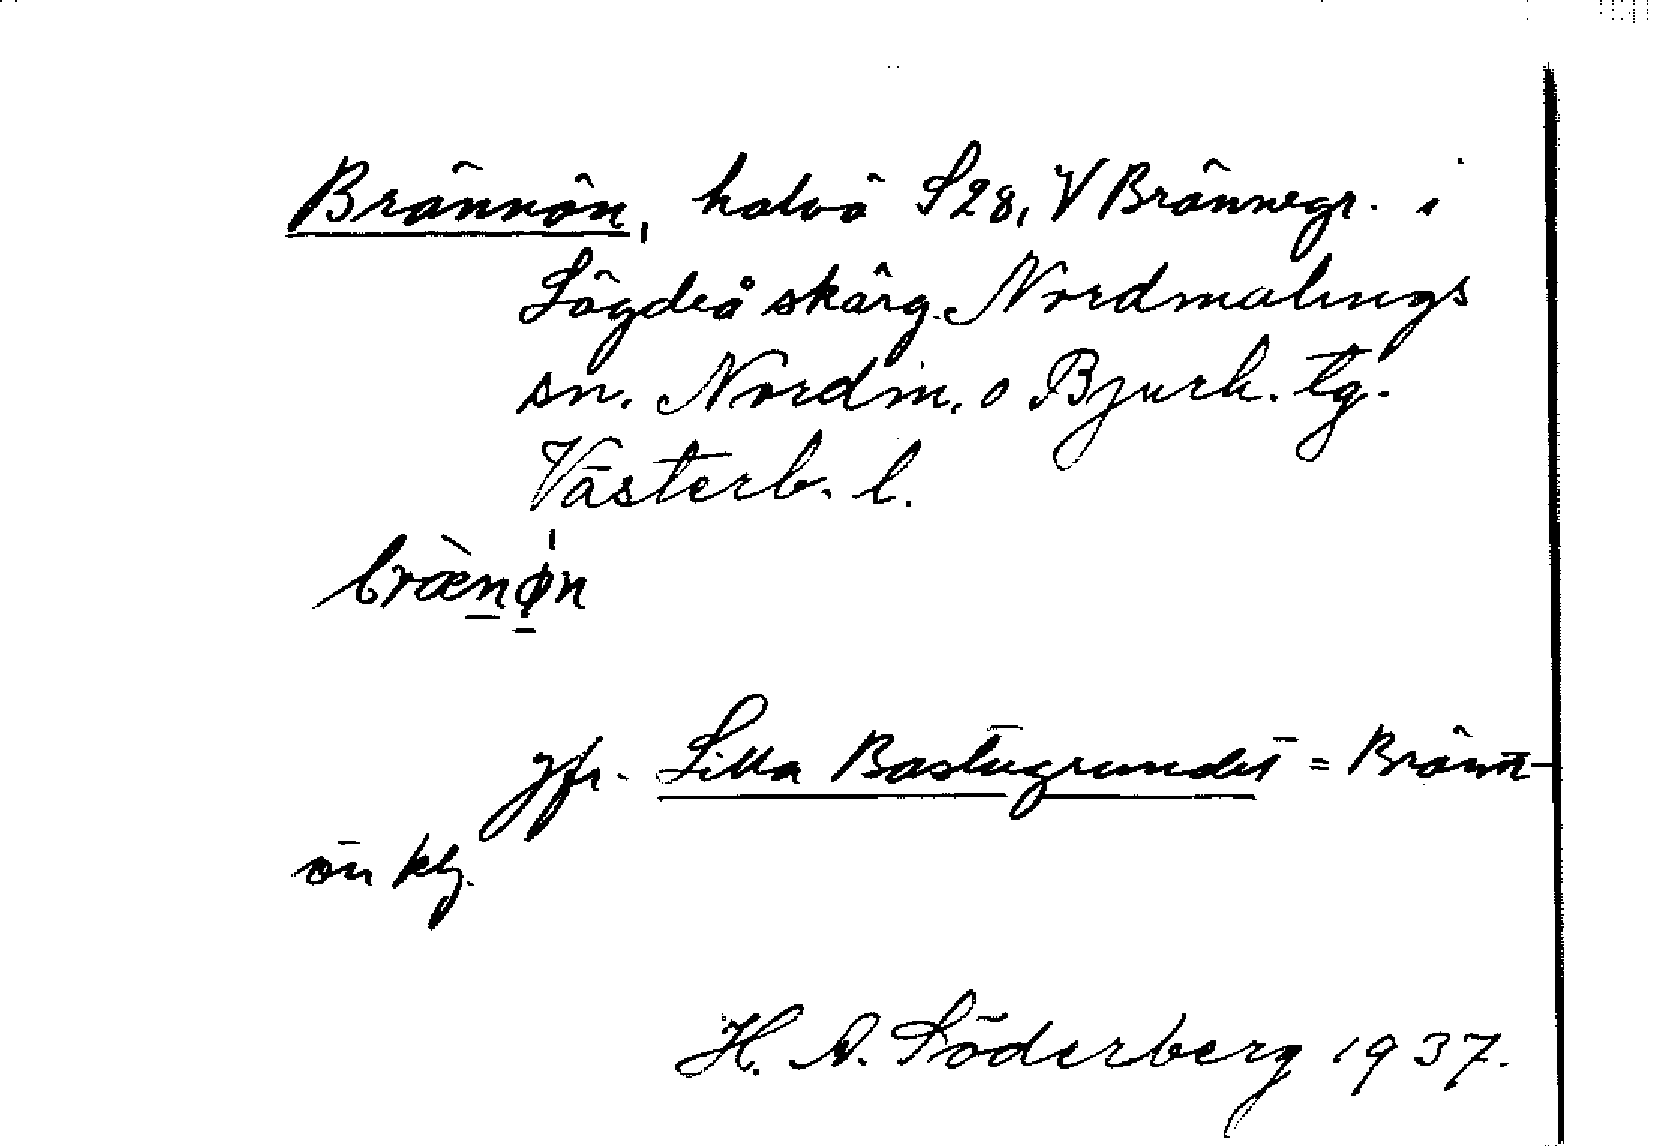 Brännön, halvö S28, V Brännegr. i
Lögdeå skärg. Nordmalings
sn. Nordm. o Bjurh. tg.
Västerb. l.
bræ̀nø̍n
jfr. Lilla Bastugrundet = Bränn-
ön klj.
H. A. Söderberg 1937.